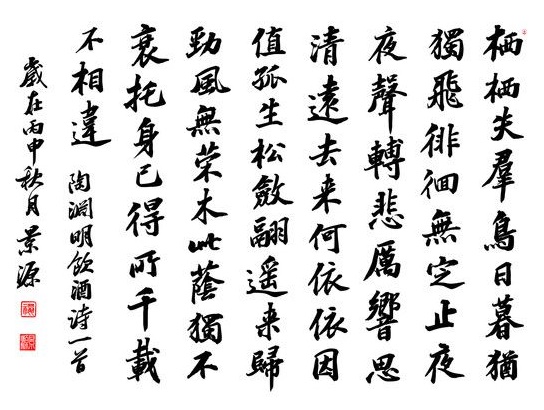 栖栖失羣鳥日暮猶
獨飛徘徊無定止夜
夜聲轉悲厲響思
清遠去来何依依因
值孤生松斂翮遥来歸
勁風無荣木此蔭獨不
衰托身已得所千載
不相違 陶淵明飲酒诗一首
歲在丙申秋月景源